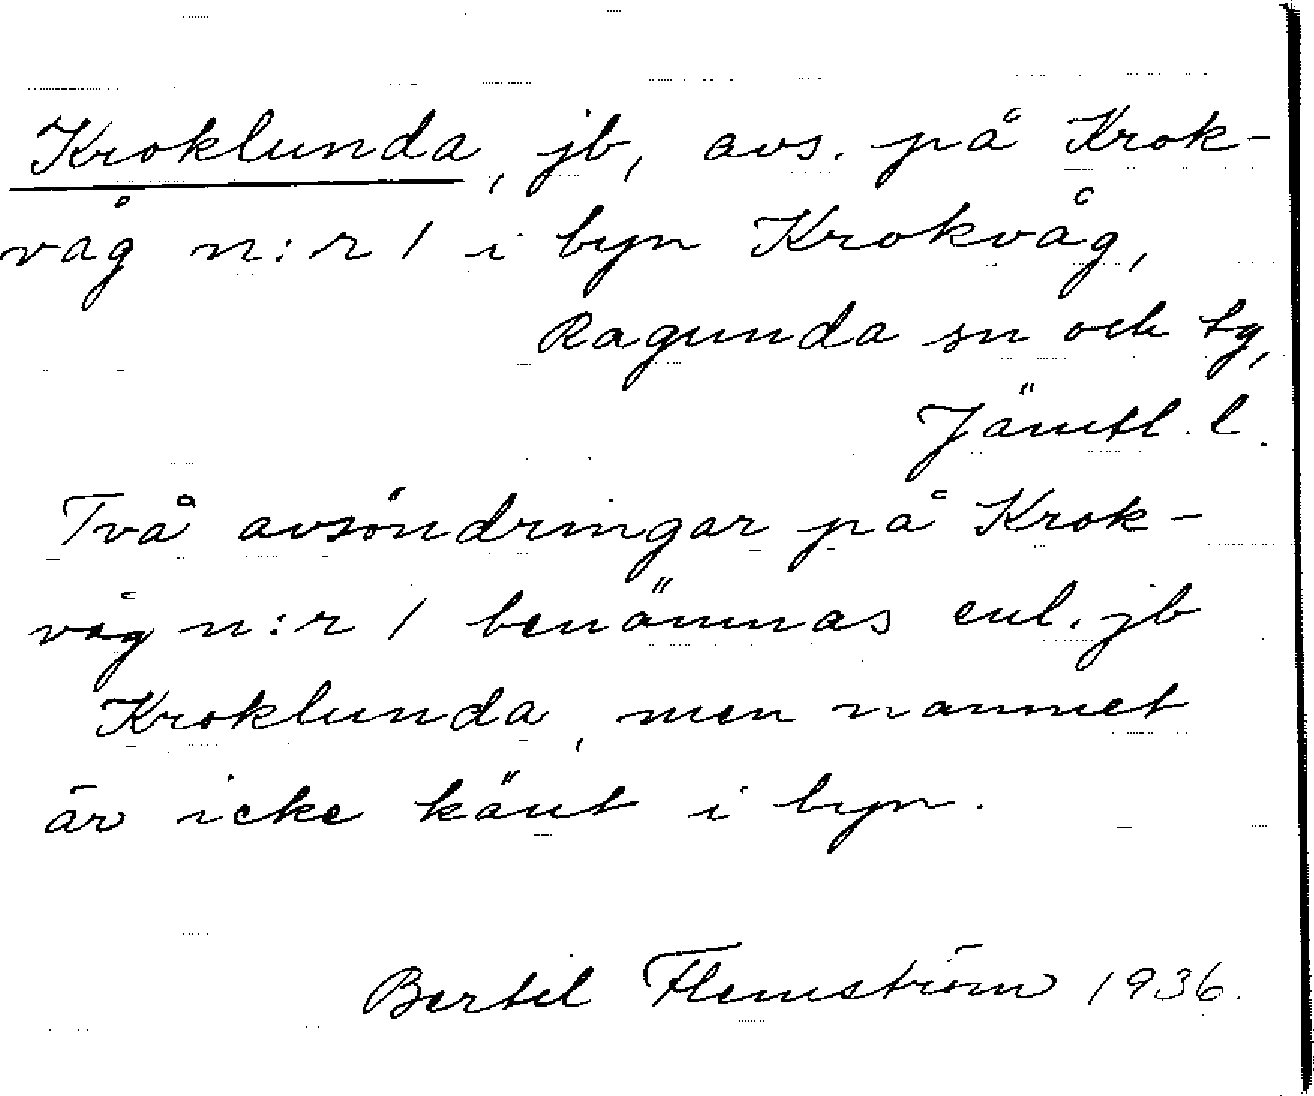 Kroklunda, jb, avs. på Krok-
våg n:r 1 i byn Krokvåg,
Ragunda sn och tg,
Jämtl. l.
Två avsöndringar på Krok-
våg n:r 1 benämnas enl. jb
Kroklunda, men namnet
är icke känt i byn.
Bertil Flemström 1936.